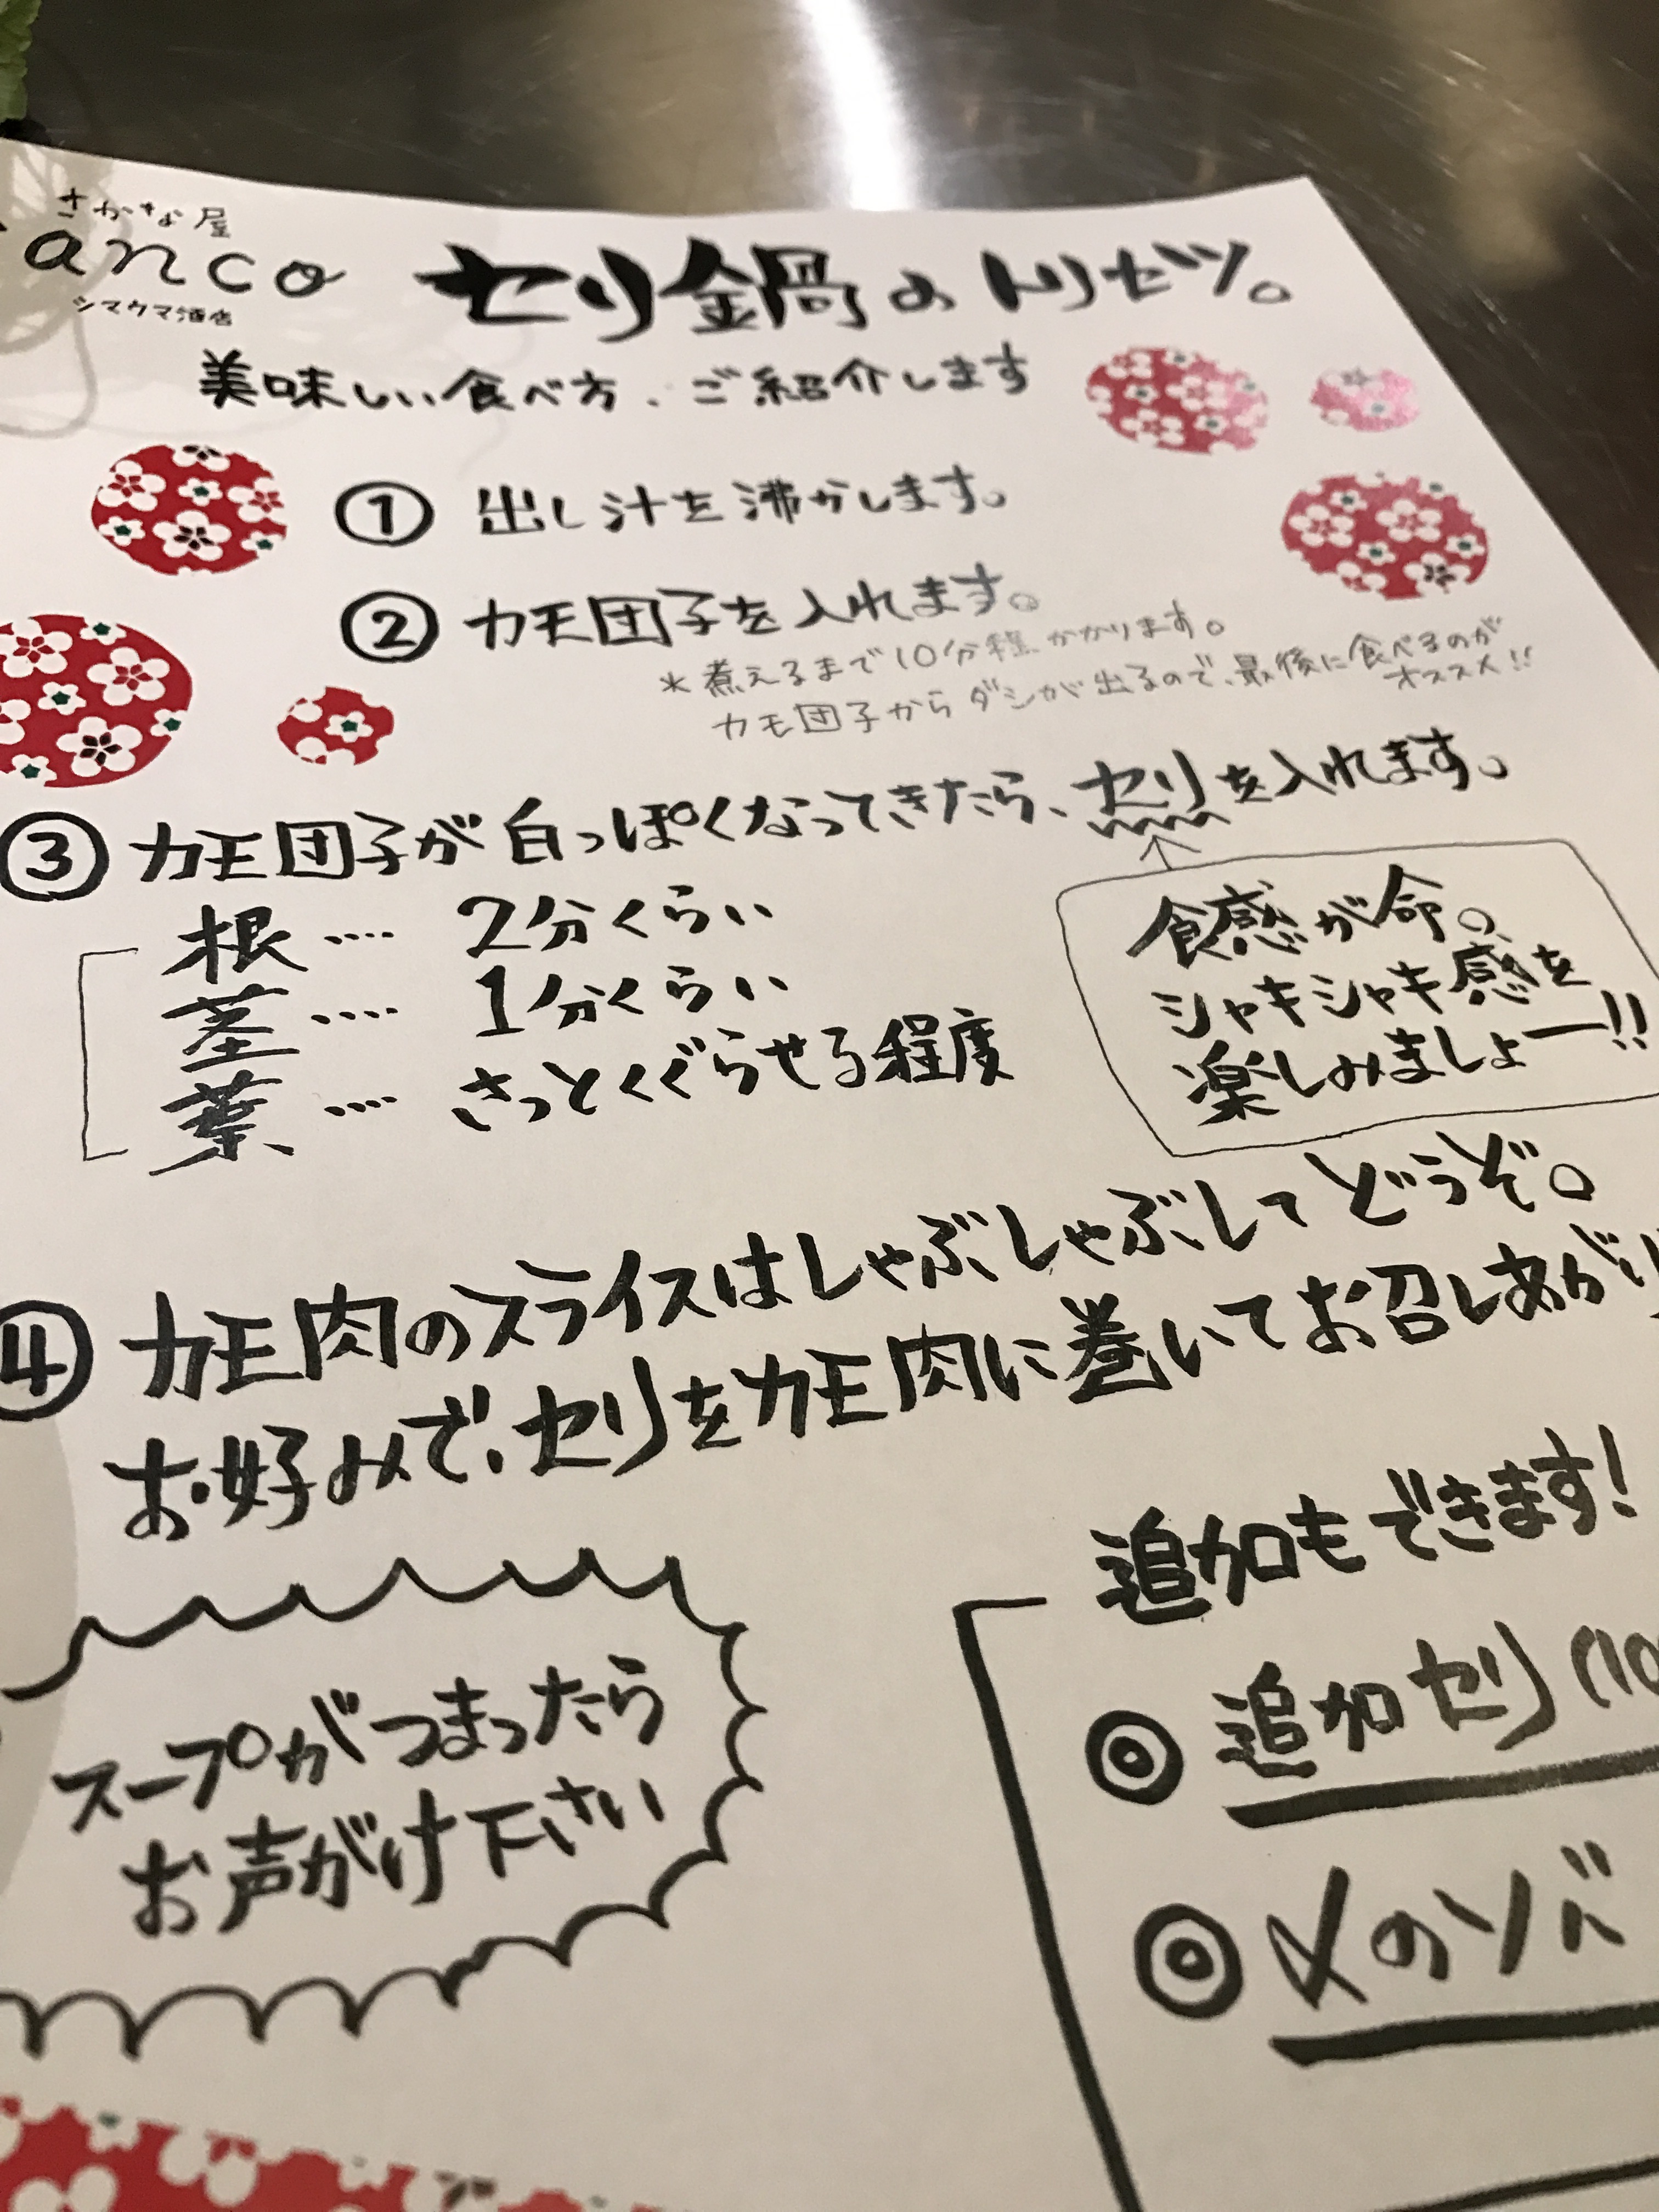 さかな屋
anco
シマウマ酒店
セリ鍋のトリセツ。
美味しい食べ方、ご紹介します
① 出し汁を沸かします。
② カモ団子を入れます。
*煮えるまで10分程かかります。
カモ団子からダシが出るので、最後に食べるのが
オススメ!!
③ カモ団子が白っぽくなってきたら、セリを入れます。
根‥‥ 2分くらい
茎‥‥ 1分くらい
葉‥‥ さっとくぐらせる程度
食感が命。
シャキシャキ感を
楽しみましょー!!
④ カモ肉のスライスはしゃぶしゃぶしてどうぞ。
お好みで、セリをカモ肉に巻いてお召しあがり
スープがつまったら
お声がけ下さい
追加もできます!
◎ 追加セリ
◎ 〆のソバ